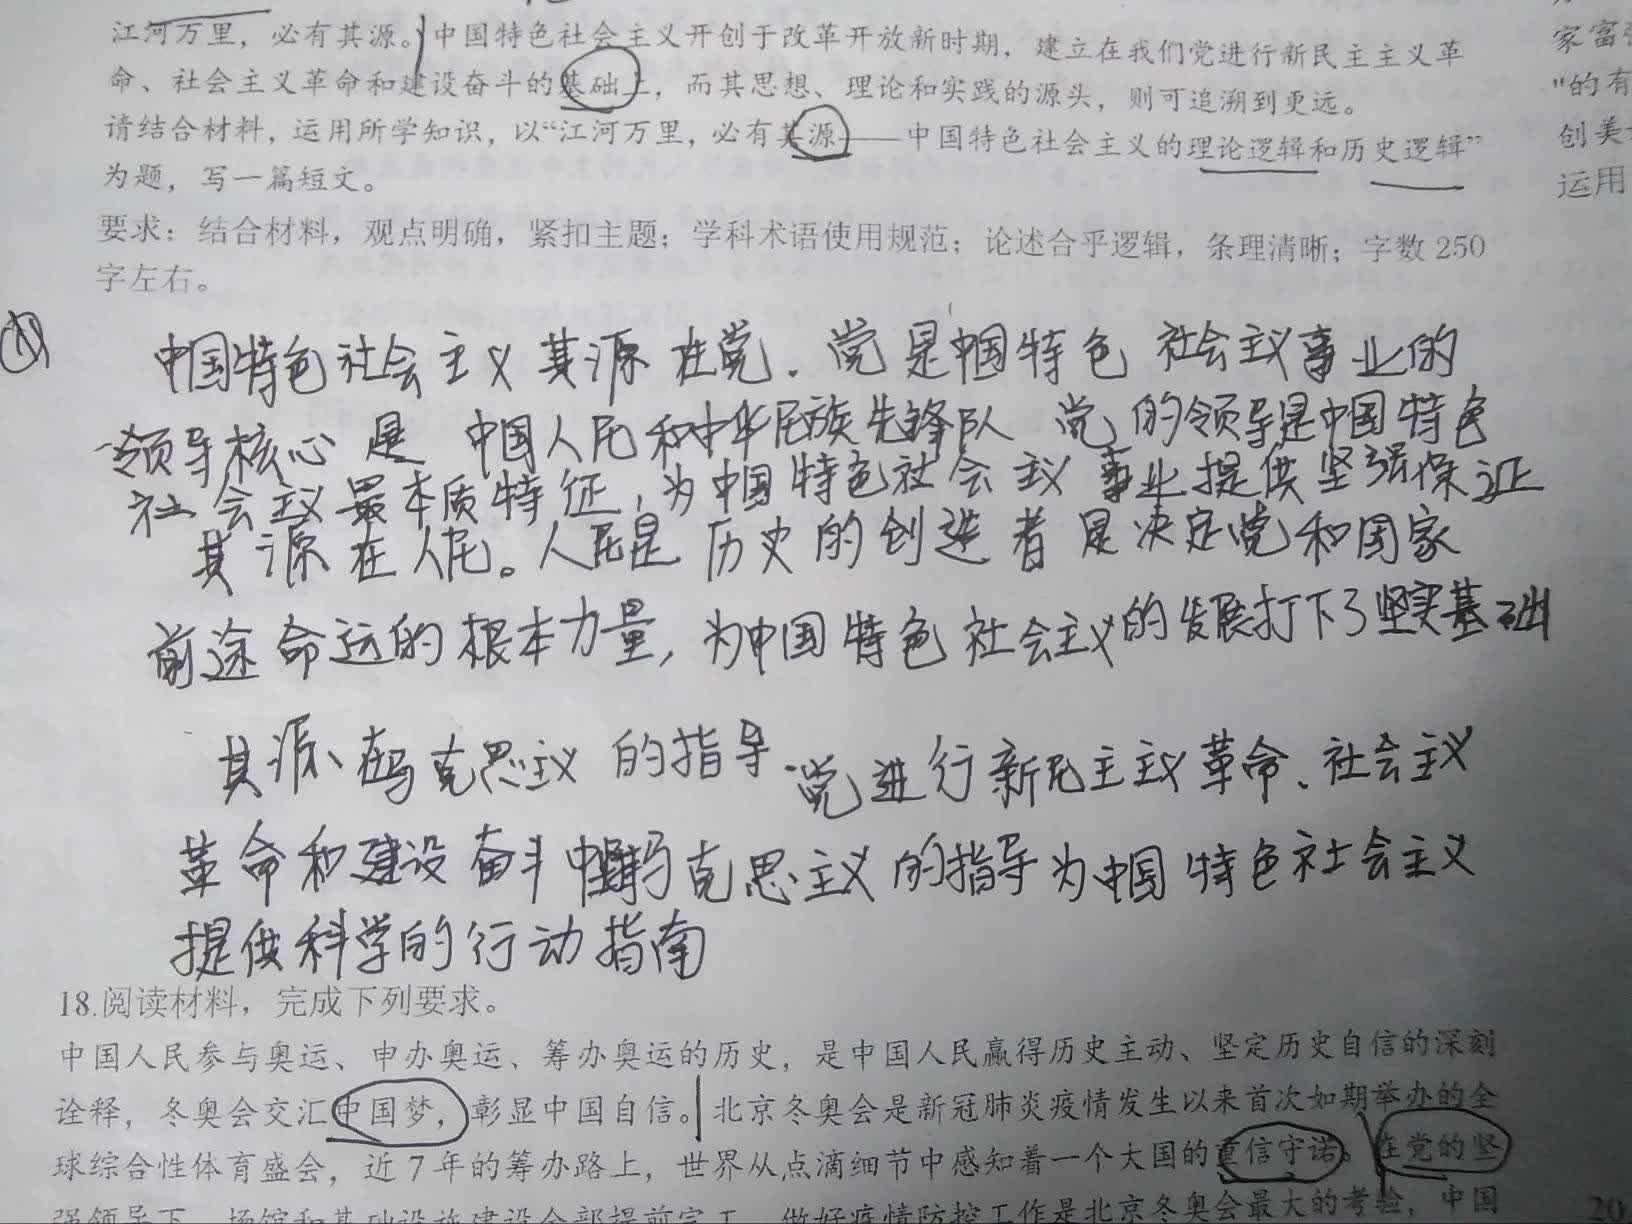 江河万里，必有其源。中国特色社会主义开创于改革开放新时期，建立在我们党进行新民主主义革
命、社会主义革命和建设奋斗的基础上，而其思想、理论和实践的源头，则可追溯到更远。
请结合材料，运用所学知识，以“江河万里，必有其源——中国特色社会主义的理论逻辑和历史逻辑”
为题，写一篇短文。
要求：结合材料，观点明确，紧扣主题；学科术语使用规范；论述合乎逻辑，条理清晰；字数 250
字左右。
家富
"的有
创美
运用
中国特色社会主义其源在党．党是中国特色社会主义事业的
领导核心是中国人民和中华民族先锋队 党的领导是中国特色
社会主义最本质特征，为中国特色社会主义事业提供坚强保证
其源在人民。人民是历史的创造者是决定党和国家
前途命运的根本力量，为中国特色社会主义的发展打下了坚实基础
其源、在马克思主义的指导．党进行新民主主义革命、社会主义
革命和建设奋斗中马克思主义的指导为中国特色社会主义
提供科学的行动指南
18.阅读材料，完成下列要求。
中国人民参与奥运、申办奥运、筹办奥运的历史，是中国人民赢得历史主动、坚定历史自信的深刻
诠释，冬奥会交汇中国梦，彰显中国自信。北京冬奥会是新冠肺炎疫情发生以来首次如期举办的全
球综合性体育盛会，近 7 年的筹办路上，世界从点滴细节中感知着一个大国的重信守诺。在党的坚
强领导下，场馆和基础设施建设全部提前完工，做好疫情防控工作是北京冬奥会最大的考验，中国
20